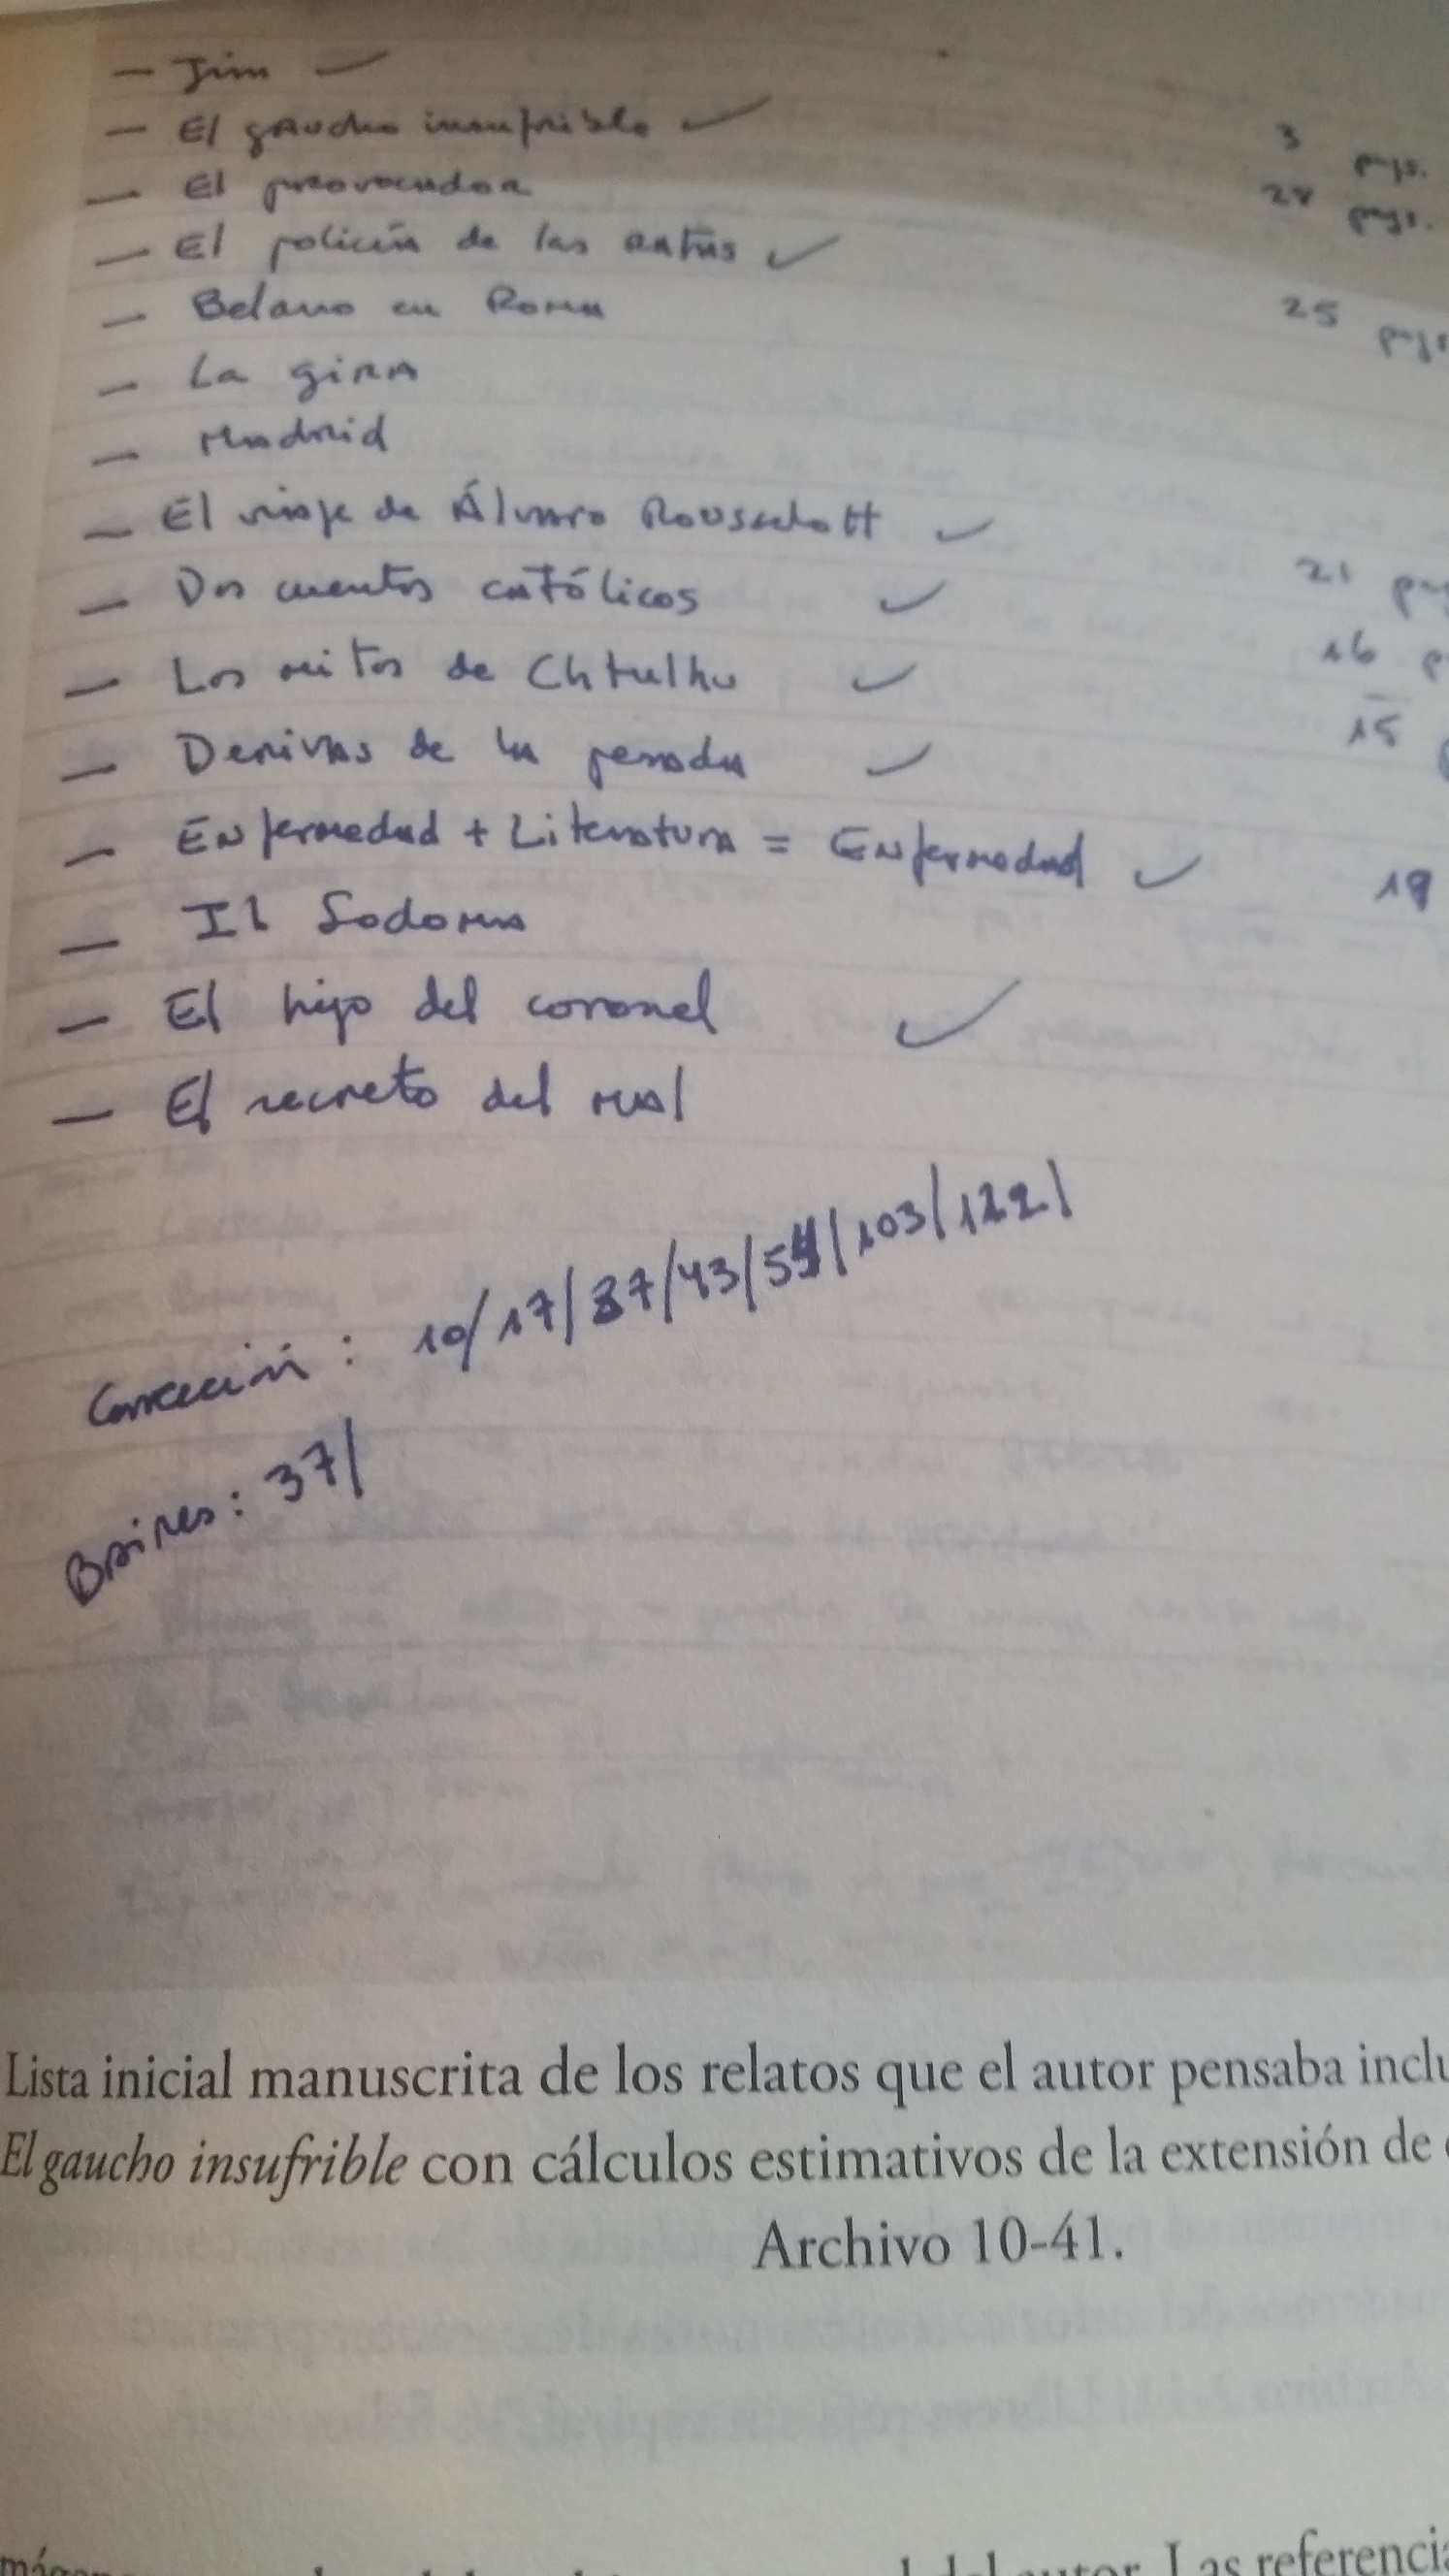 — Jim ✓
— El gaucho insufrible ✓ 3 pags.
— El provocador 28 pags.
— El policía de las ratas ✓
— Belano en Roma 25 pags
— La gira
— Madrid
— El viaje de Álvaro Rousselott ✓
— Dos cuentos católicos ✓ 21
— Los mitos de Chtulhu ✓ 16 p
— Derivas de la pesada ✓ 15 p
— Enfermedad + Literatura = Enfermedad ✓ 19
— Il Sodoma
— El hijo del coronel ✓
— El secreto del mal
Corrección: 10/17/37/43/54/103/122/
Baires: 37/
Lista inicial manuscrita de los relatos que el autor pensaba inclu
El gaucho insufrible con cálculos estimativos de la extensión de
Archivo 10-41.
del autor. Las referencia